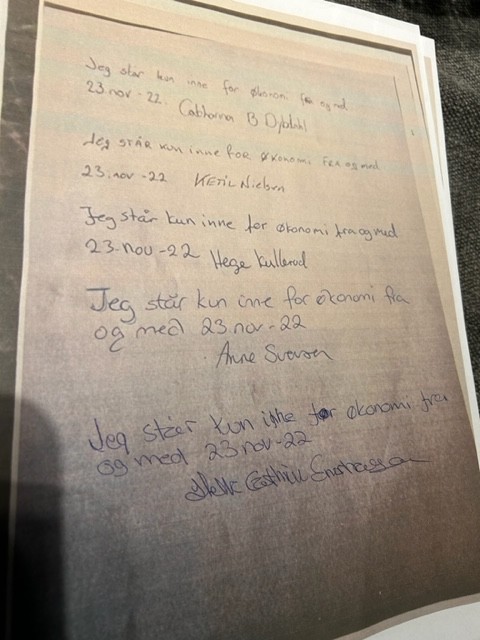 Jeg står kun inne for økonomi fra og med
23 nov - 22. B Dybdahl
Jeg STÅR kun inne FOR ØKONOMI FRA og med
23. nov - 22 KETIL Nielsen
Jeg står kun inne for økonomi fra og med
23. nov - 22 Hege Kullerud
Jeg står kun inne for økonomi fra
og med 23 nov - 22
Anne
Jeg står kun inne for økonomi fra
og med 23 nov - 22